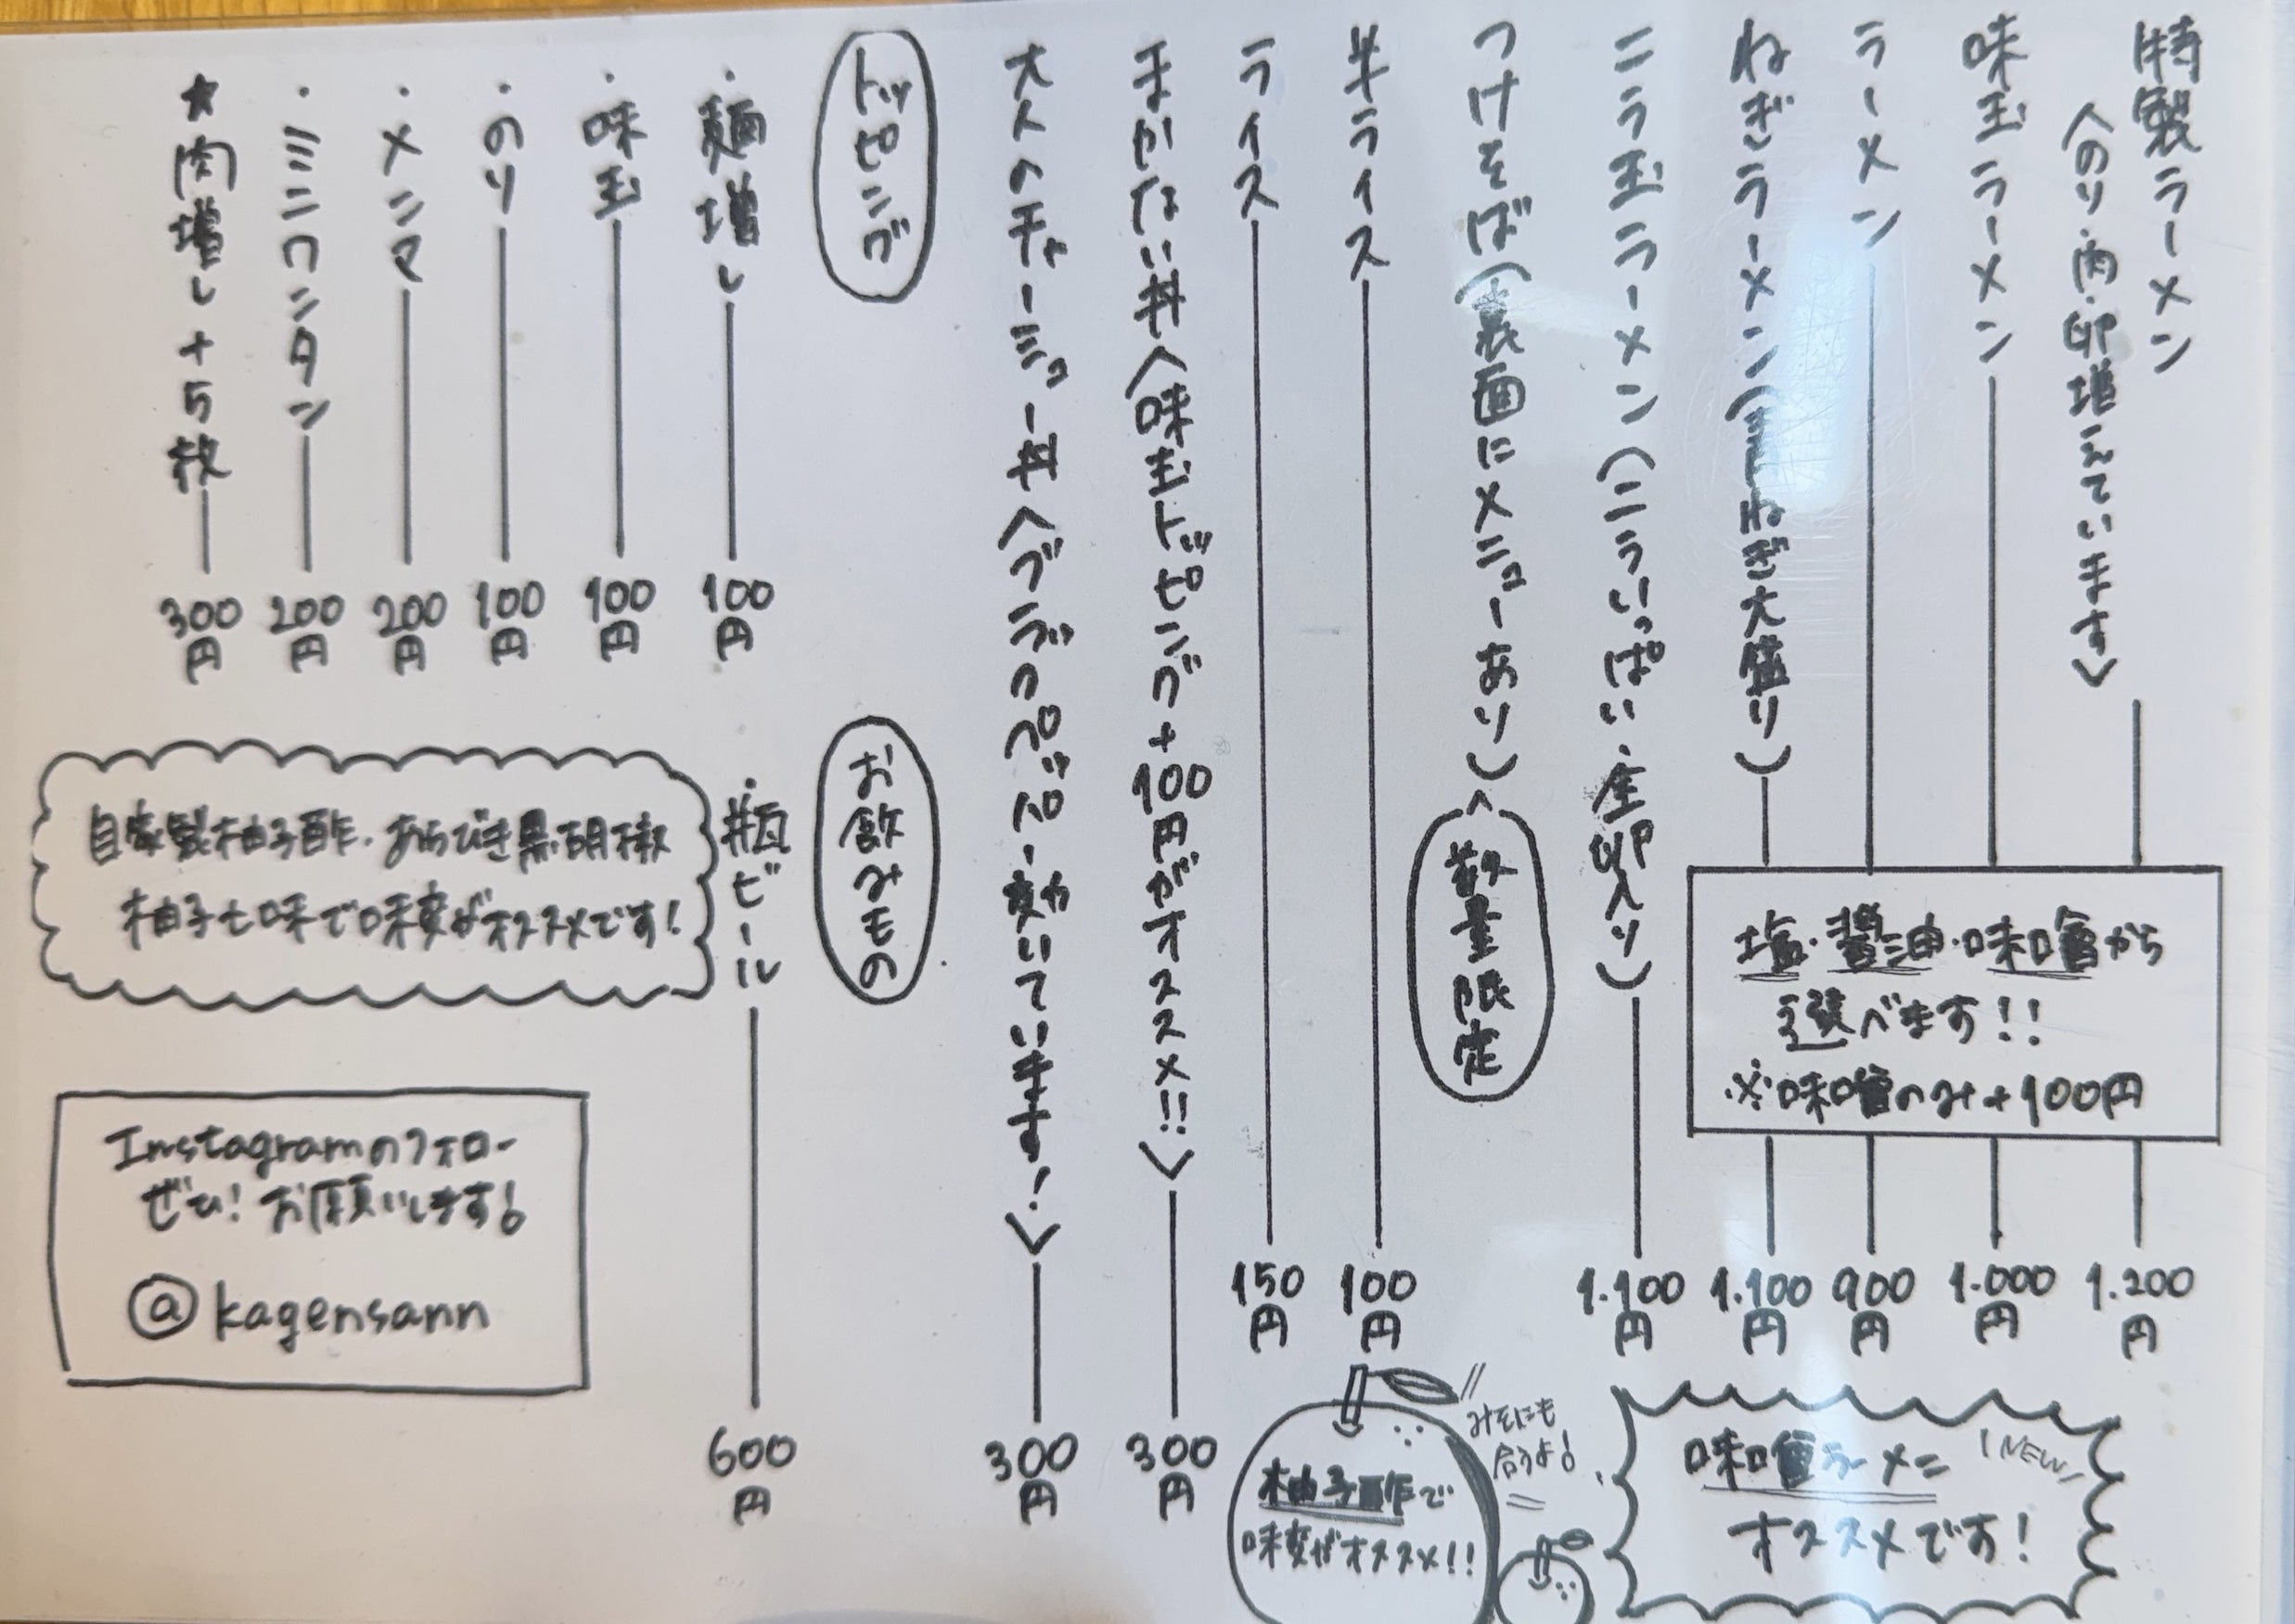 特製ラーメン
〈のり・肉・卵増えています〉
1.200円
味玉ラーメン
1.000円
ラーメン
900円
ねぎラーメン(白ねぎ大盛り)
1.100円
塩・醤油・味噌から
選べます!!
※味噌のみ+100円
ニラ玉ラーメン(ニラいっぱい・全卵入り)
1.100円
つけそば(裏面にメニューあり)
数量限定
半ライス
100円
ライス
150円
まかない丼〈味玉トッピング+100円がオススメ!!!〉
300円
大人のチャーシュー丼〈ブラックペッパー効いています!〉
300円
トッピング
・麺増し
100円
・味玉
100円
・のり
100円
・メンマ
200円
・ミニワンタン
200円
★肉増し+5枚
300円
お飲みもの
・瓶ビール
600円
自家製柚子酢・あらびき黒胡椒
柚子七味で味変がオススメです!
Instagramのフォロー
ぜひ!お願いします!
@kagensann
みそにも
合うよ!
柚子酢で
味変がオススメ!!
NEW
味噌ラーメン
オススメです!